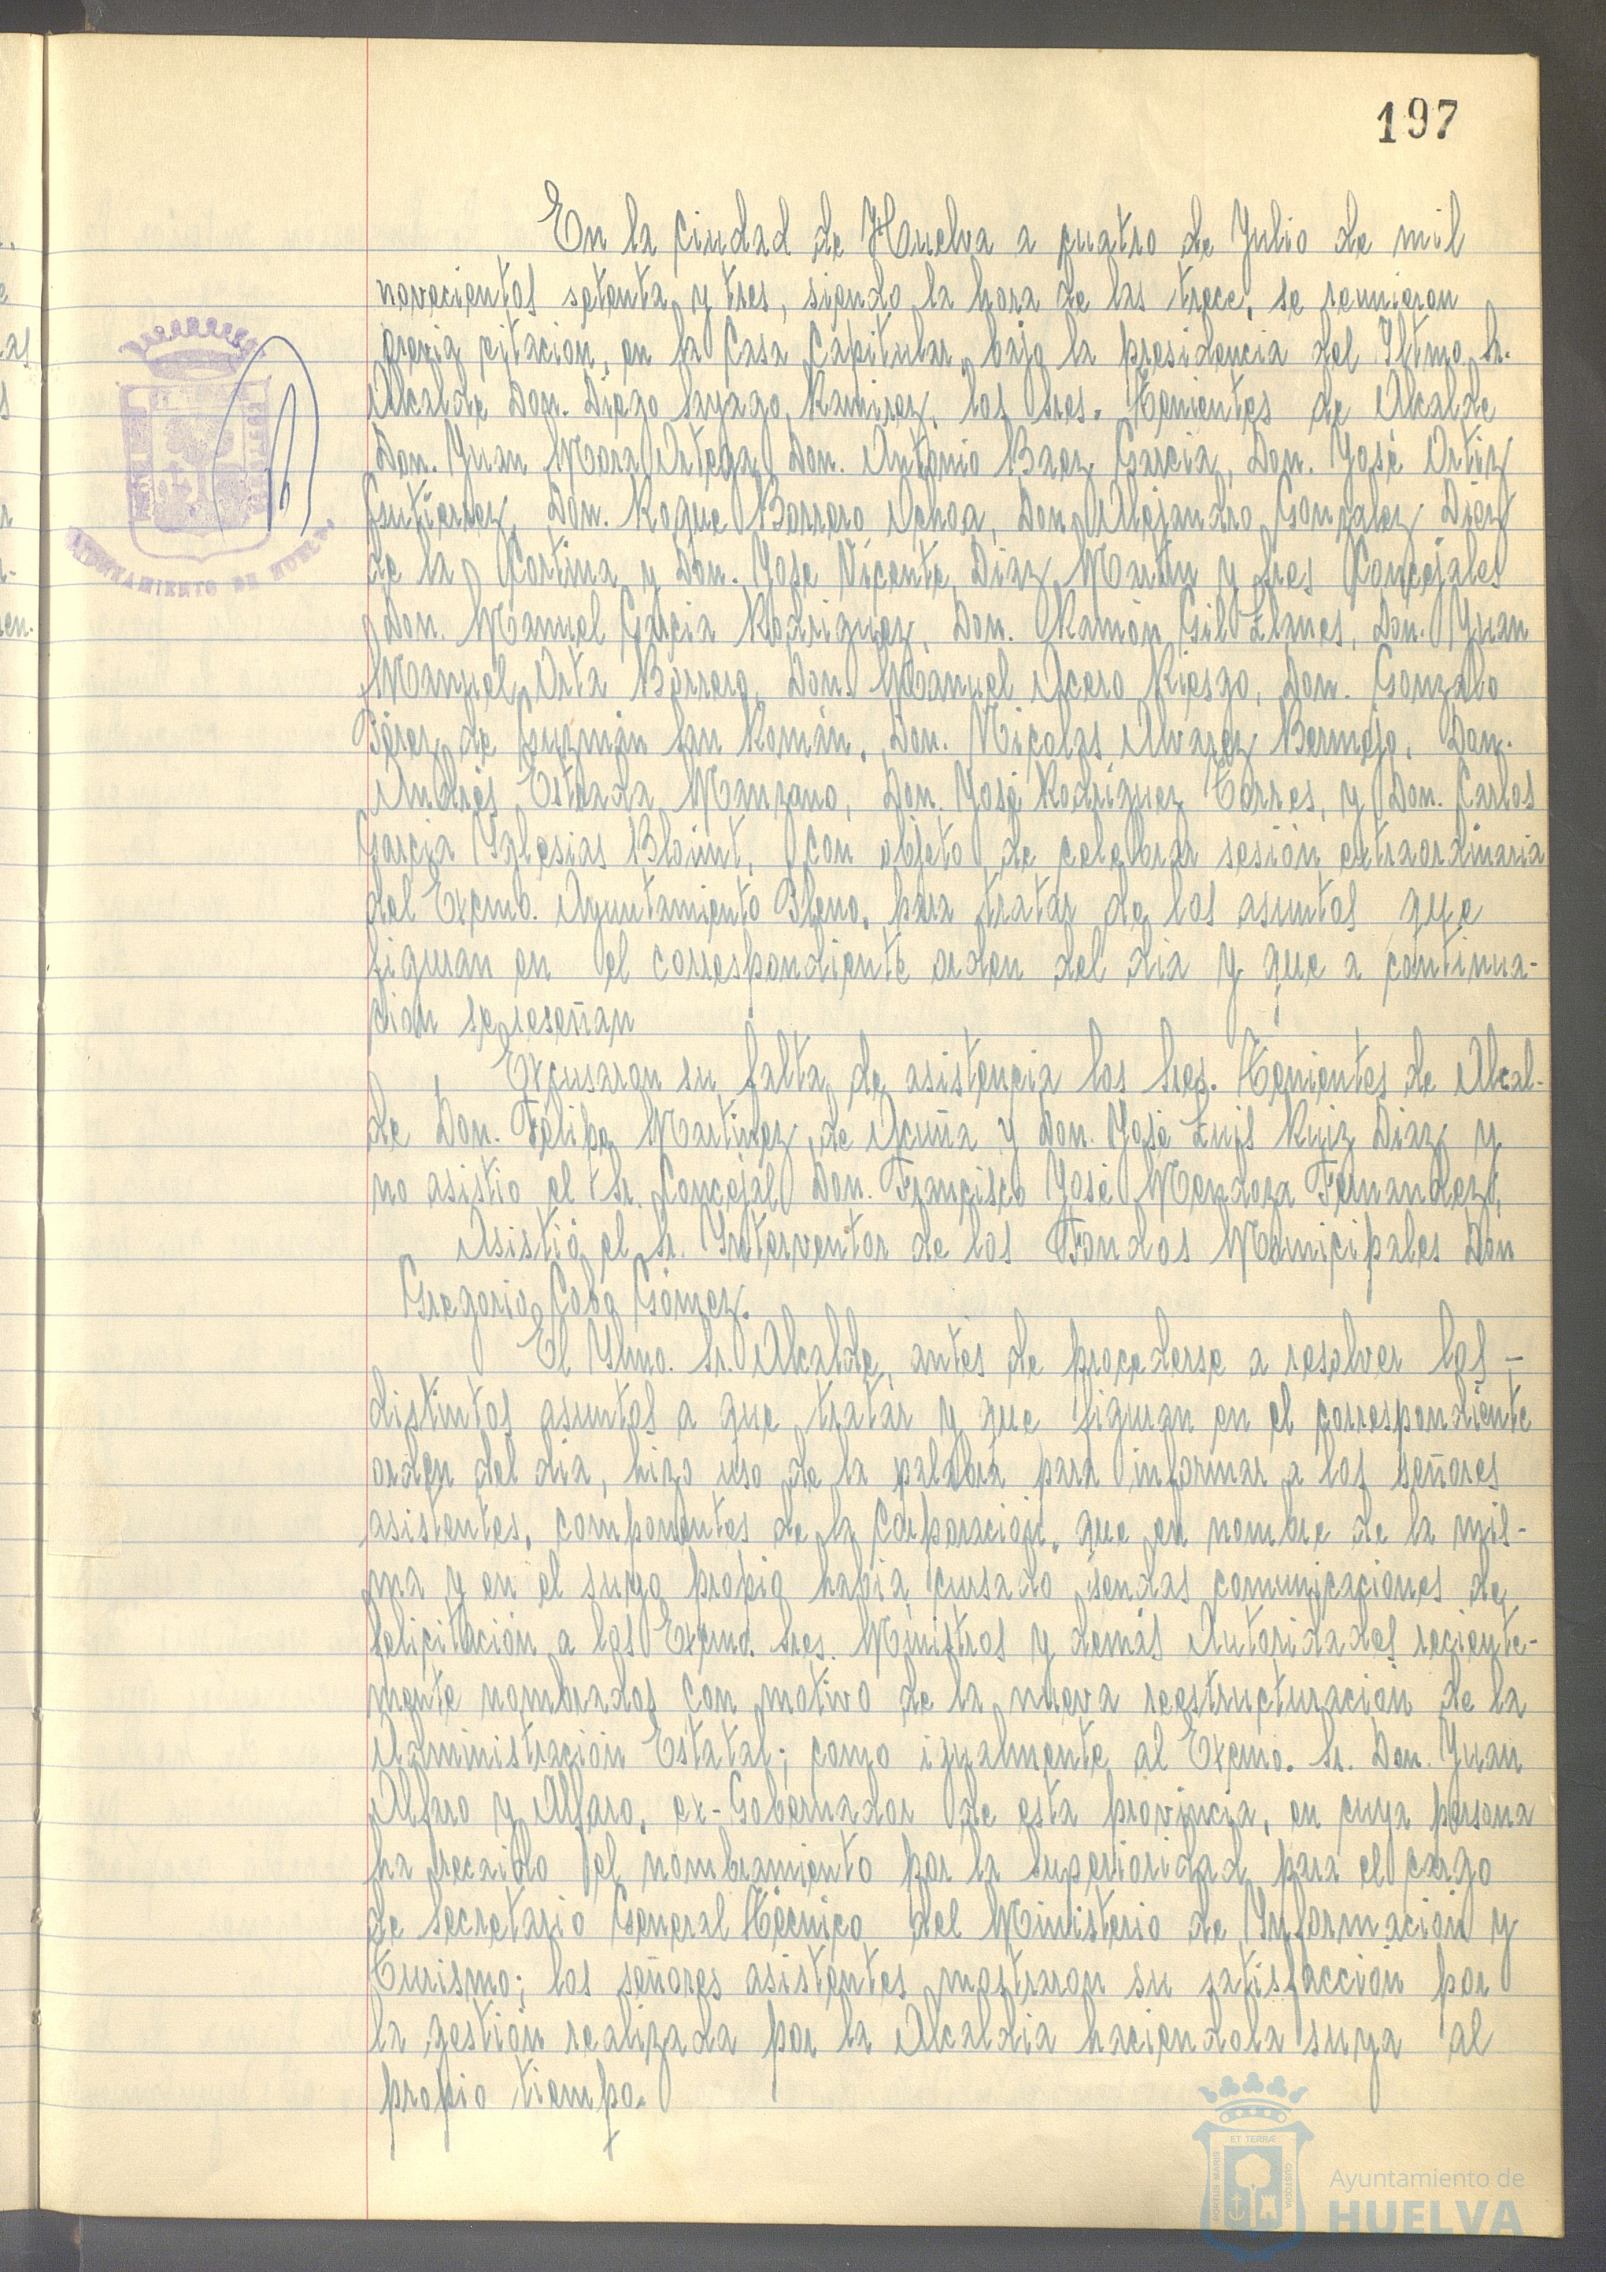 197
En la ciudad de Huelva a cuatro de Julio de mil
novecientos setenta y tres, siendo la hora de las trece, se reunieron
previa citacion, en la Casa Capitular, bajo la presidencia del Iltmo. Sr.
Alcalde Don. Diego Sayago Ramirez, los Sres. Tenientes de Alcalde
Don. Juan Mora Ortega, Don. Antonio Baez Garcia, Don. José Ortiz
Gutierrez, Don. Roque Barrero Ochoa, Don Alejandro Gonzalez Diez
de la Cortina y Don. Jose Vicente Diaz Martin y Sres Concejales
Don. Manuel Garcia Rodriguez, Don. Ramón Gil Llanes, Don. Juan
Manuel Orta Borrero, Don. Manuel Acero Riesgo, Don. Gonzalo
Pérez de Guzmán San Román, Don. Nicolas Alvarez Bermejo, Don.
Andrés Estrada Manzano, Don. José Rodriguez Torres, y Don. Carlos
Garcia Yglesias Blóunt, con objeto de celebrar sesión extraordinaria
del Excmo. Ayuntamiento Pleno, para tratar de los asuntos que
figuran en el correspondiente orden del dia y que a continua-
cion se reseñan
Excusaron su falta de asistencia los Sres. Tenientes de Alcal-
de Don. Felipe Martinez de Acuña y Don. José Luis Ruiz Diaz y
no asistio el Sr. Concejal Don. Francisco José Mendoza Fernandez,
Asistió el Sr. Interventor de los Fondos Municipales Don
Gregorio Cobo Gómez.
El Ylmo. Sr. Alcalde, antes de procederse a resolver los -
distintos asuntos a que tratar y que figuran en el correspondiente
orden del dia, hizo uso de la palabra para informar a los señores
asistentes, componentes de la Corporación, que en nombre de la mis-
ma y en el suyo propio habia cursado sendas comunicaciones de
felicitación a los Excmo. Sres. Ministros y demás Autoridades reciente-
mente nombrados con motivo de la nueva reestructuración de la
Administración Estatal; como igualmente al Excmo. Sr. Don. Juan
Alfaro y Alfaro, ex-Gobernador de esta provincia, en cuya persona
ha recaido el nombramiento por la Superioridad para el cargo
de Secretario General Técnico del Ministerio de Información y
Turismo; los señores asistentes mostraron su satisfacción por
la gestión realizada por la Alcaldia haciendola suya al
propio tiempo.
AYUNTAMIENTO DE HUELVA
Ayuntamiento de
HUELVA